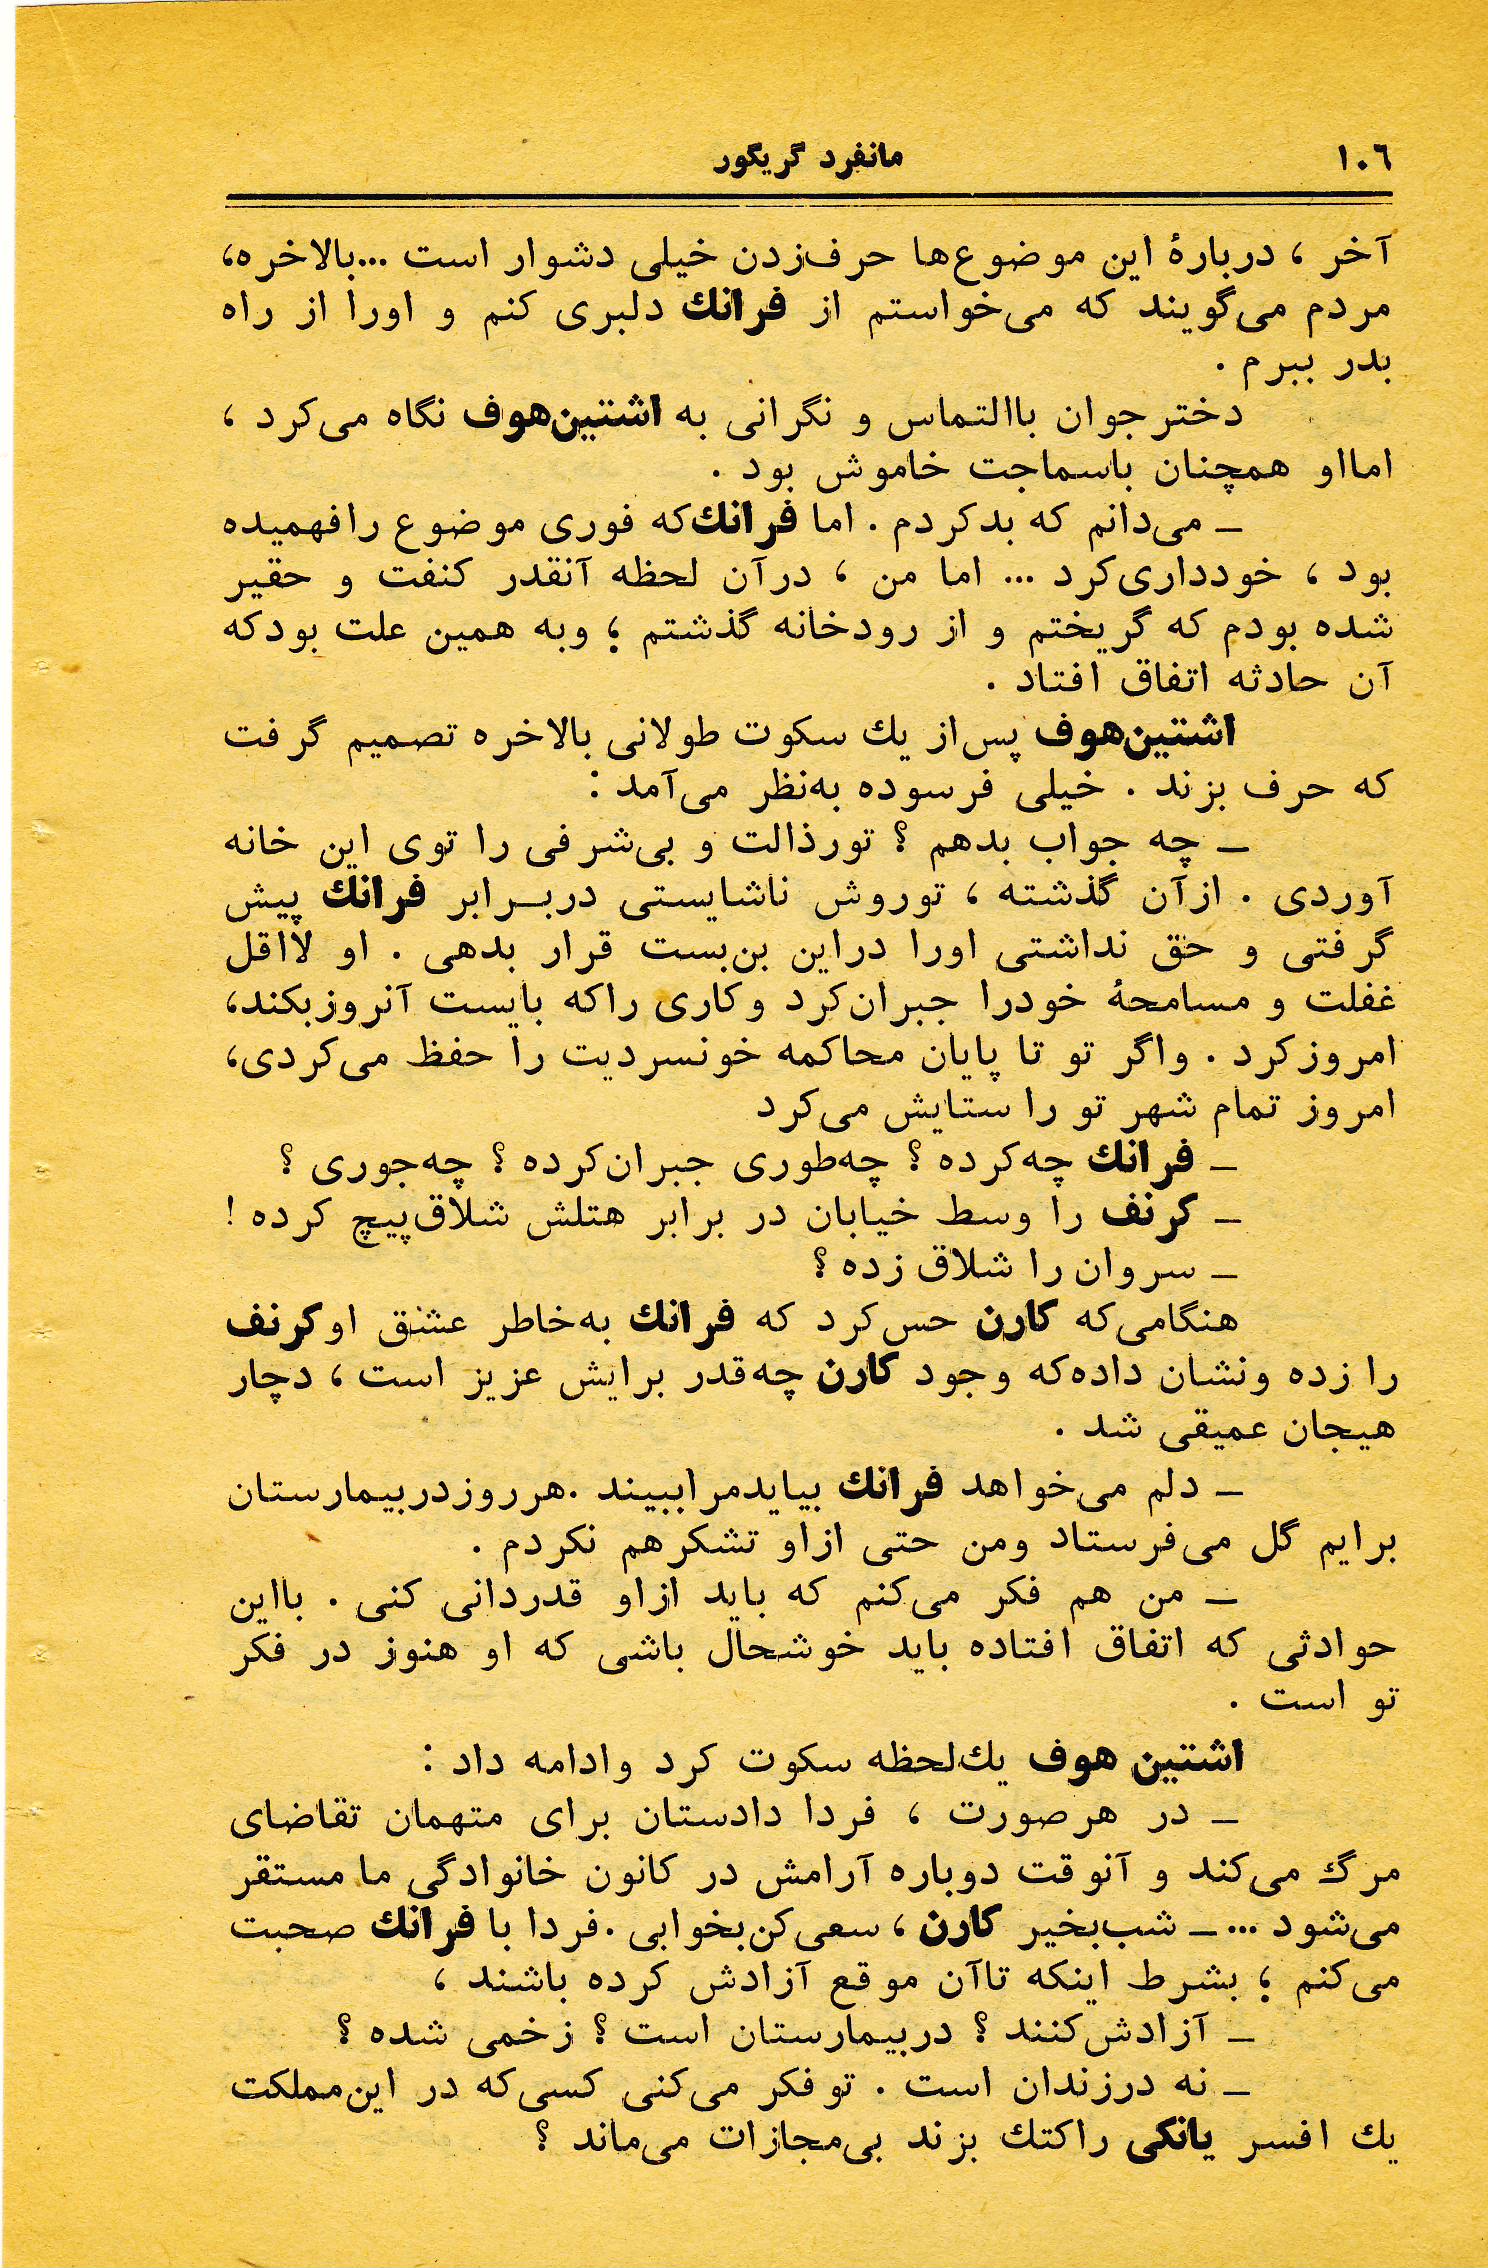 ۱۰۶
مانفرد گریگور
آخر ، دربارهٔ این موضوع‌ها حرف‌زدن خیلی دشوار است ...بالاخره،
مردم می‌گویند که می‌خواستم از فرانك دلبری کنم و اورا از راه
بدر ببرم .
دخترجوان باالتماس و نگرانی به اشتین‌هوف نگاه می‌کرد ،
امااو همچنان باسماجت خاموش بود .
ــ می‌دانم که بدکردم . اما فرانك‌که فوری موضوع رافهمیده
بود ، خودداری‌کرد ... اما من ، درآن لحظه آنقدر کنفت و حقیر
شده بودم که گریختم و از رودخانه گذشتم ؛ وبه همین علت بودکه
آن حادثه اتفاق افتاد .
اشتین‌هوف پس‌از یك سکوت طولانی بالاخره تصمیم گرفت
که حرف بزند . خیلی فرسوده به‌نظر می‌آمد :
ــ چه جواب بدهم ؟ تورذالت و بی‌شرفی را توی این خانه
آوردی . ازآن گذشته ، توروش ناشایستی دربــرابر فرانك پیش
گرفتی و حق نداشتی اورا دراین بن‌بست قرار بدهی . او لااقل
غفلت و مسامحهٔ خودرا جبران‌کرد وکاری راکه بایست آنروزبکند،
امروزکرد . واگر تو تا پایان محاکمه خونسردیت را حفظ می‌کردی،
امروز تمام شهر تو را ستایش می‌کرد
ــ فرانك چه‌کرده ؟ چه‌طوری جبران‌کرده ؟ چه‌جوری ؟
ــ کرنف را وسط خیابان در برابر هتلش شلاق‌پیچ کرده !
ــ سروان را شلاق زده ؟
هنگامی‌که کارن حس‌کرد که فرانك به‌خاطر عشق اوکرنف
را زده ونشان داده‌که وجود کارن چه‌قدر برایش عزیز است ، دچار
هیجان عمیقی شد .
ــ دلم می‌خواهد فرانك بیایدمراببیند .هرروزدربیمارستان
برایم گل می‌فرستاد ومن حتی ازاو تشکرهم نکردم .
ــ من هم فکر می‌کنم که باید ازاو قدردانی کنی . بااین
حوادثی که اتفاق افتاده باید خوشحال باشی که او هنوز در فکر
تو است .
اشتین هوف یك‌لحظه سکوت کرد وادامه داد :
ــ در هرصورت ، فردا دادستان برای متهمان تقاضای
مرگ می‌کند و آنوقت دوباره آرامش در کانون خانوادگی ما مستقر
می‌شود ...ــ شب‌بخیر کارن ، سعی‌کن‌بخوابی .فردا با فرانك صحبت
می‌کنم ؛ بشرط اینکه تاآن موقع آزادش کرده باشند ،
ــ آزادش‌کنند ؟ دربیمارستان است ؟ زخمی شده ؟
ــ نه درزندان است . توفکر می‌کنی کسی‌که در این‌مملکت
یك افسر یانکی راکتك بزند بی‌مجازات می‌ماند ؟